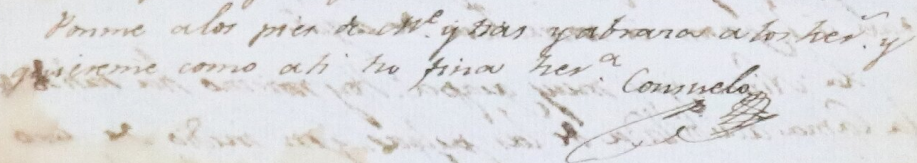 Ponme a los pies de M.e y tias y abraza a los her.s y
quiereme como a ti tu fina her.a
Consuelo